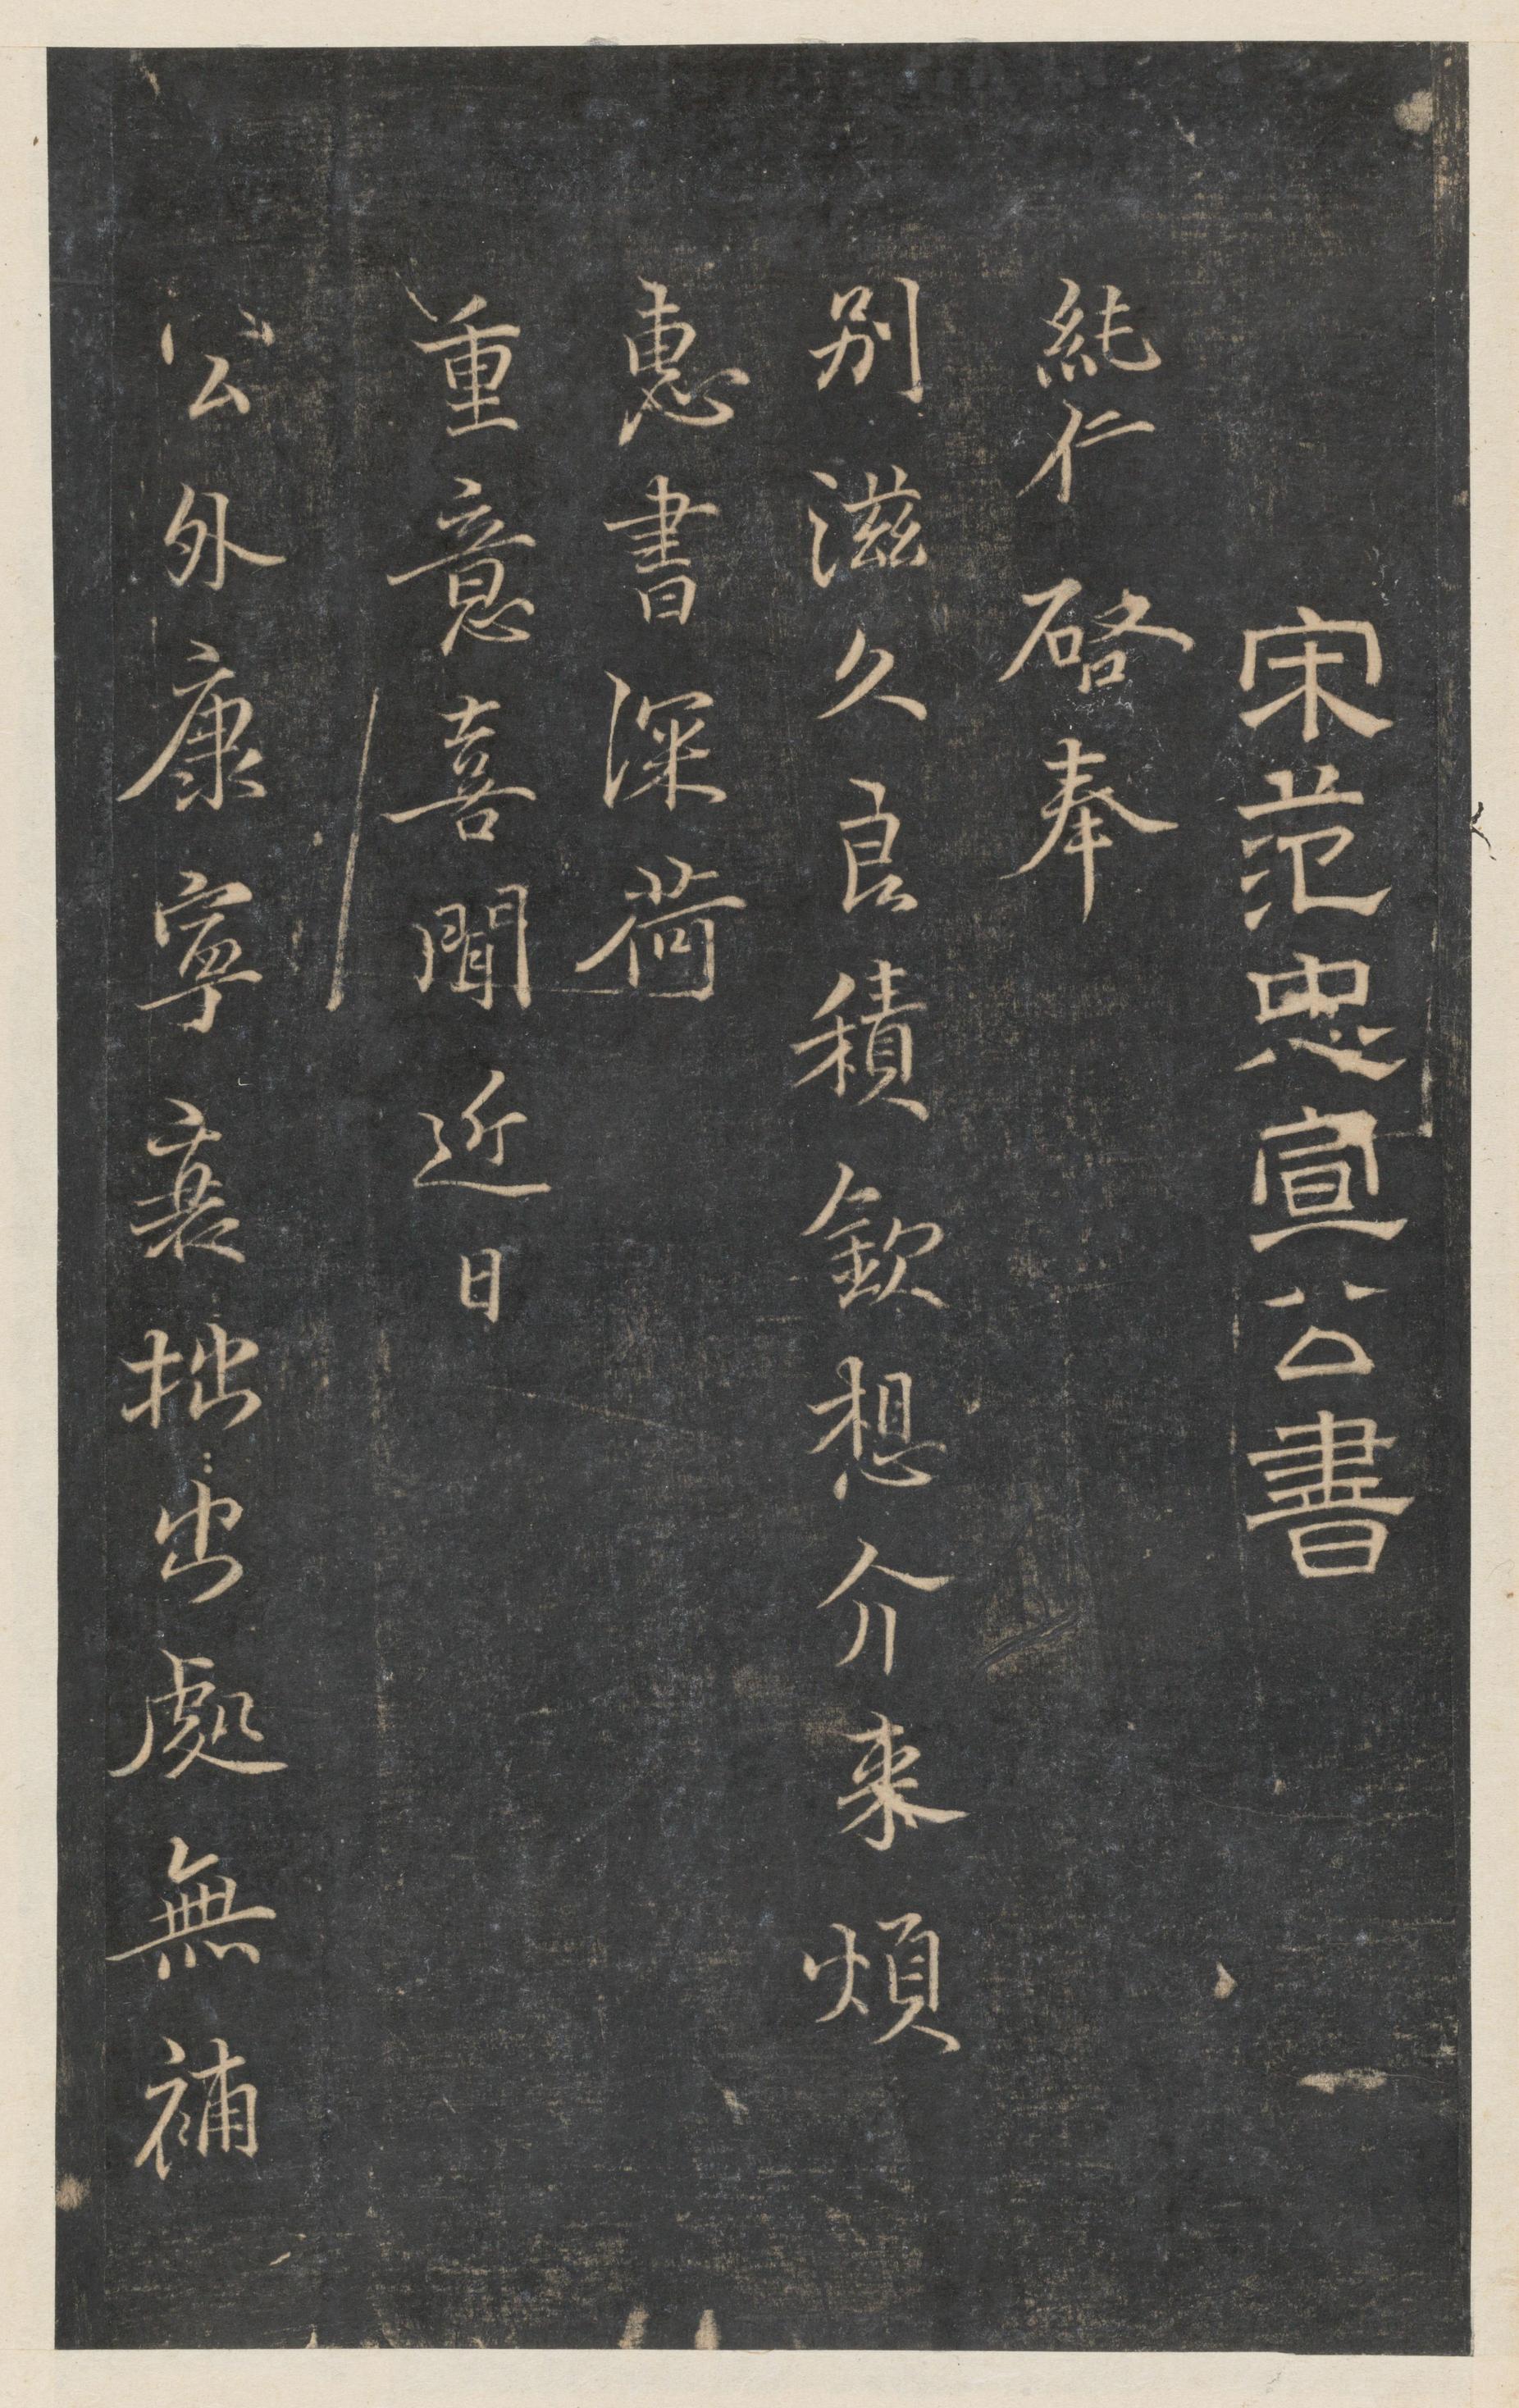 宋范忠宣公書
純仁啓奉
別滋久良積欽想介来煩
惠書深荷
重意喜聞近日
公外康寧衰拙出處無補